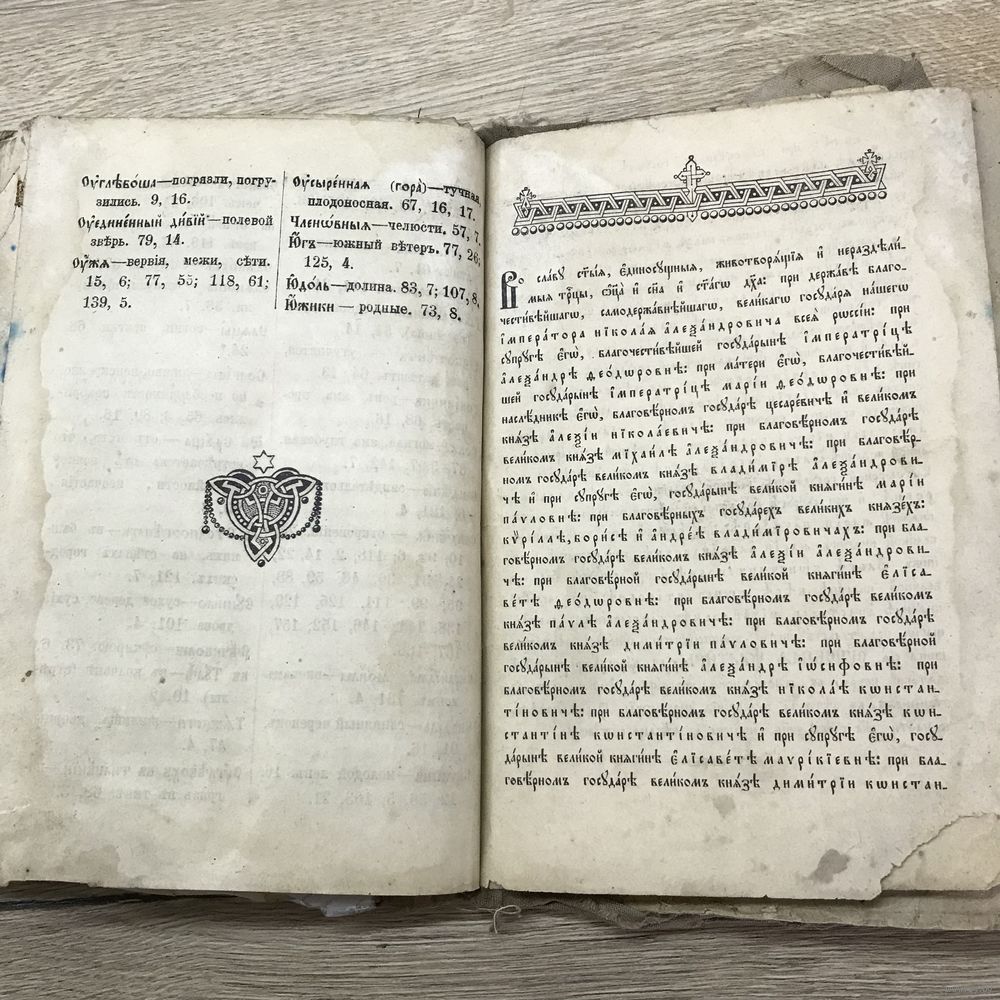 Оуглѣбо́ша—погрязли, погру-
зились. 9, 16.
Оуедине́нный ди́вїй—полевой
звѣрь. 79, 14.
Оу҆́жѧ—вервія, межи, сѣти.
15, 6; 77, 55; 118, 61;
139, 5.
Оусыре́ннаѧ (гора̀)—тучная,
плодоносная. 67, 16, 17.
Члено́вныѧ—челюсти. 57, 7.
Ю҆́гъ—южный вѣтеръ. 77, 26;
125, 4.
Ю҆до́ль—долина. 83, 7; 107, 8.
Ю҆́жики—родные. 73, 8.
Во сла́вꙋ ст҃ы́ѧ, є҆диносꙋ́щныѧ, животворѧ́щїѧ и҆ нераздѣли́-
мыѧ трⷪ҇цы, ѻ҆ц҃а̀ и҆ сн҃а и҆ ст҃а́гѡ дх҃а: при держа́вѣ благо-
чести́вѣйшагѡ, самодержа́внѣйшагѡ, вели́кагѡ госꙋдарѧ на́шегѡ
і҆мпера́тора нїкола́ѧ а҆леѯа́ндровича всеѧ̀ рѡссі́и: при
сꙋпрꙋ́гѣ є҆гѡ̀, благочести́вѣйшей госꙋда́рынѣ і҆мператрі́цѣ
а҆леѯа́ндрѣ ѳео́дѡровнѣ: при ма́тери є҆гѡ̀, благочести́вѣй-
шей госꙋда́рынѣ і҆мператрі́цѣ марі́и ѳео́дѡровнѣ: при
наслѣ́дникѣ є҆гѡ̀, благовѣ́рномъ госꙋда́рѣ цесаре́вичѣ и҆ вели́комъ
кнѧ́зѣ а҆леѯі́и нїкола́евичѣ: при благовѣ́рномъ госꙋда́рѣ
вели́комъ кнѧ́зѣ мїхаи́лѣ а҆леѯа́ндровичѣ: при благовѣ́р-
номъ госꙋда́рѣ вели́комъ кнѧ́зѣ влади́мїрѣ а҆леѯа́ндрови-
чѣ и҆ при сꙋпрꙋ́гѣ є҆гѡ̀, госꙋда́рынѣ вели́кой кнѧги́нѣ марі́и
па́ѵловнѣ: при благовѣ́рныхъ госꙋда́рехъ вели́кихъ кнѧзе́хъ:
кѷрі́ллѣ, бори́сѣ и҆ а҆ндре́ѣ влади́мїровичахъ: при бла-
говѣ́рномъ госꙋда́рѣ вели́комъ кнѧ́зѣ а҆леѯі́и а҆леѯа́ндрови-
чѣ: при благовѣ́рной госꙋда́рынѣ вели́кой кнѧги́нѣ є҆лїса-
ве́тѣ ѳео́дѡровнѣ: при благовѣ́рномъ госꙋда́рѣ вели́комъ
кнѧ́зѣ па́ѵлѣ а҆леѯа́ндровичѣ: при благовѣ́рномъ госꙋда́рѣ
вели́комъ кнѧ́зѣ дими́трїи па́ѵловичѣ: при благовѣ́рной
госꙋда́рынѣ вели́кой кнѧги́нѣ а҆леѯа́ндрѣ і҆ѡ́сифовнѣ: при
благовѣ́рномъ госꙋда́рѣ вели́комъ кнѧ́зѣ нїкола́ѣ кѡнстан-
ті́новичѣ: при благовѣ́рномъ госꙋда́рѣ вели́комъ кнѧ́зѣ кѡн-
станті́нѣ кѡнстанті́новичѣ и҆ при сꙋпрꙋ́гѣ є҆гѡ̀, госꙋ-
да́рынѣ вели́кой кнѧги́нѣ є҆лїсаве́тѣ маѵрі́кїевнѣ: при бла-
говѣ́рномъ госꙋда́рѣ вели́комъ кнѧ́зѣ дими́трїи кѡнстан-